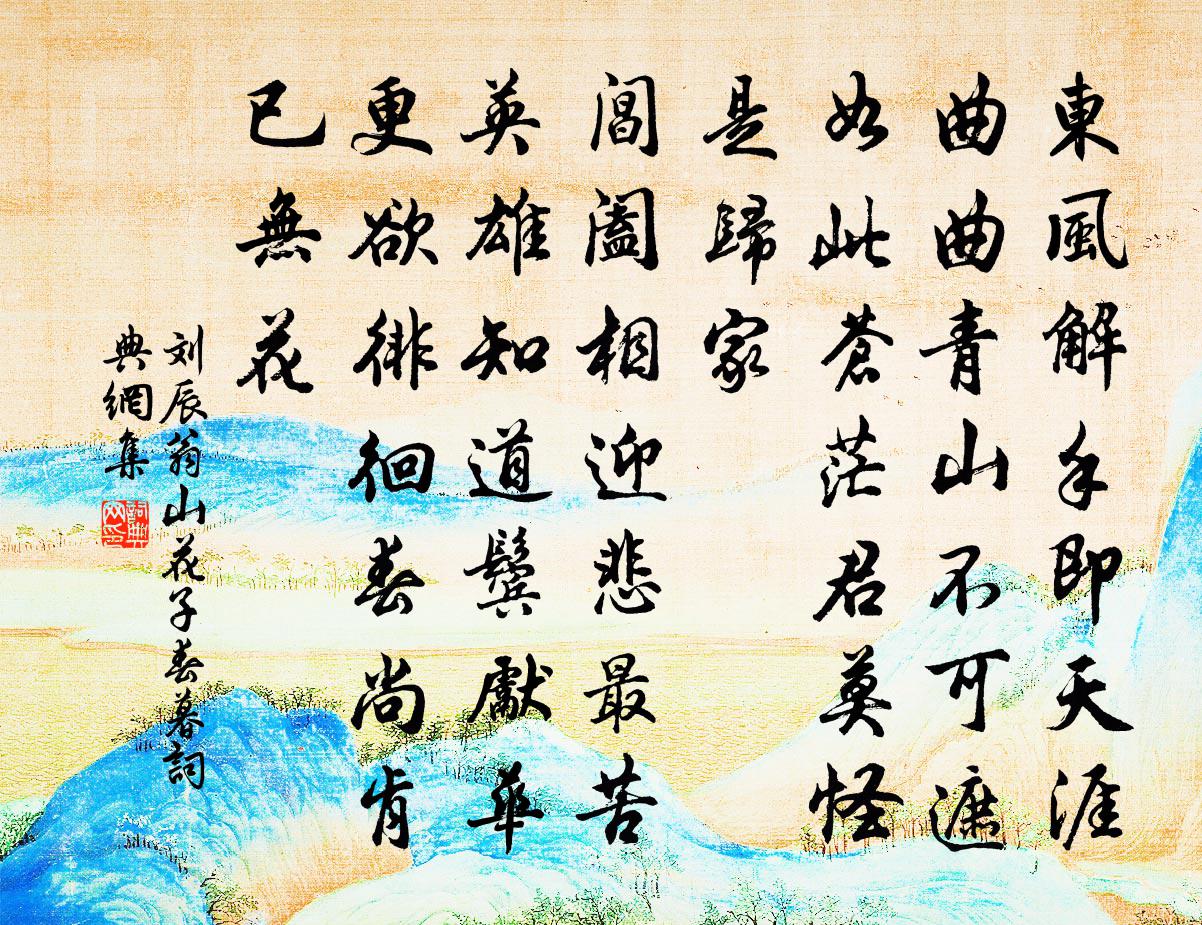 東風解手即天涯
曲曲青山不可遮
如此蒼茫君莫怪
是歸家
閶闔相迎悲最苦
英雄知道鬢獻華
更欲徘徊春尚肯
已無花
刘辰翁山花子春暮詞
典網集
詞典
网印